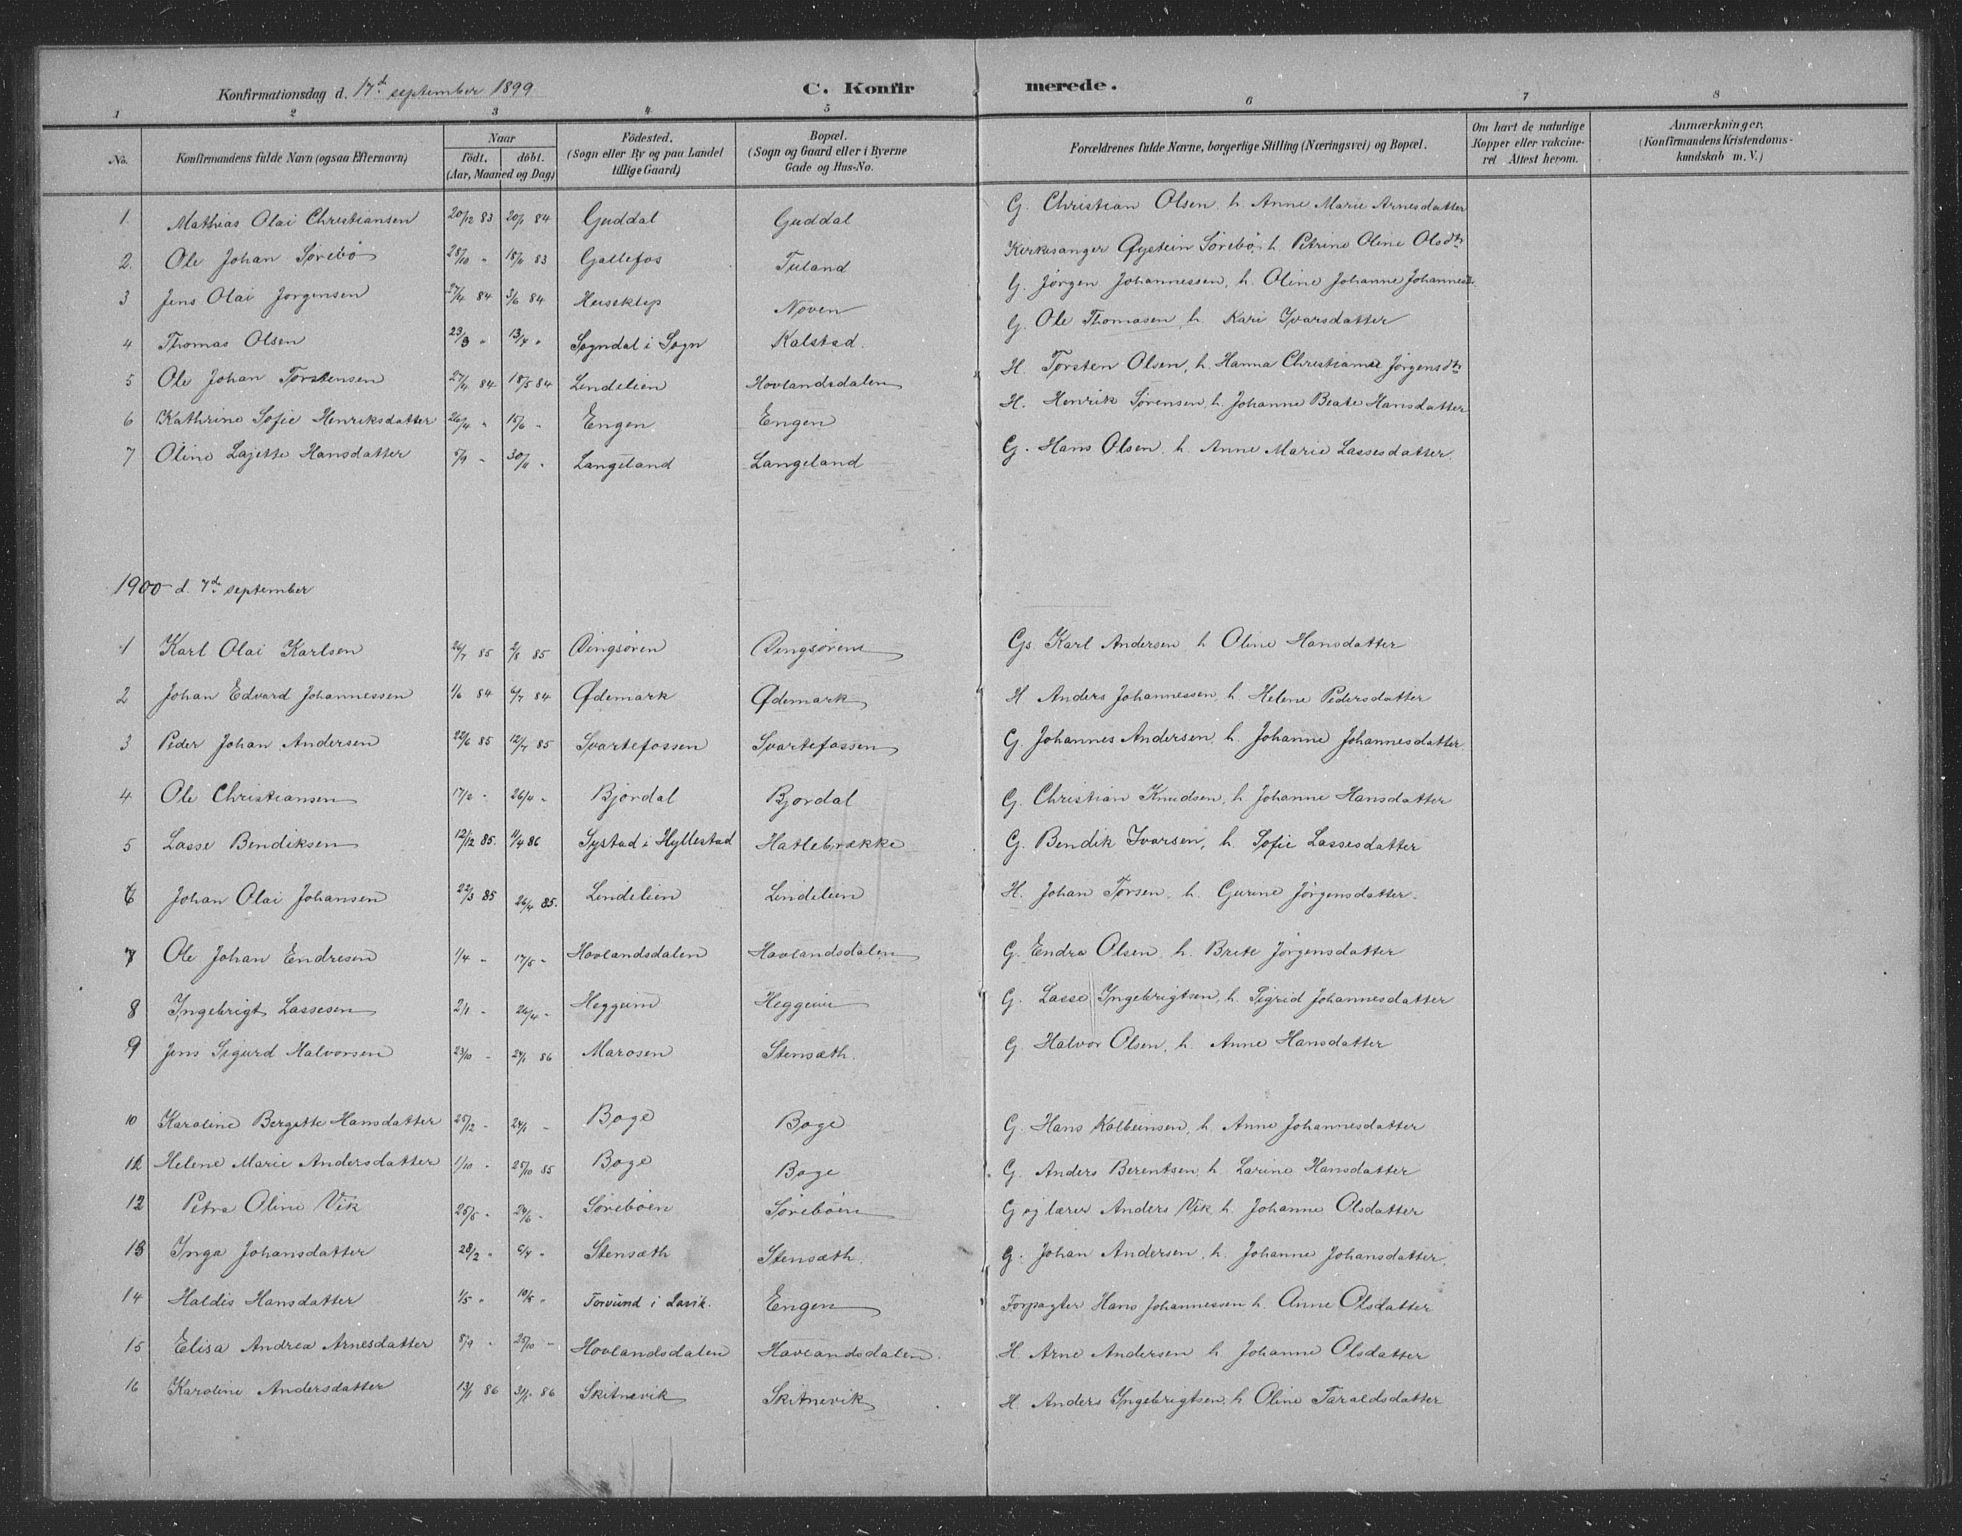 Konfirmationsdag d. 17d september 1899 C. Konfirmerede.
1 2 3 4 5 6 7 8
No. Konfirmandens fulde Navn (ogsaa Efternavn) Naar født. døbt. (Aar, Maaned og Dag) Födested. (Sogn eller By og paa Landet tillige Gaard) Bopæl. (Sogn og Gaard eller i Byerne Gade og Hus-No. Forældrenes fulde Navne, borgerlige Stilling (Næringsvei) og Bopæl. Om havt de naturlige Kopper eller vakcineret Attest herom. Anmærkninger. (Konfirmandens Kristendomskundskab m. V.)
1. Mathias Olai Christiansen 20/12 83 20/1 84 Guddal Guddal G. Christian Olsen h. Anne Marie Arnesdatter
2. Ole Johan Sørebø 28/10 " 18/11 83 Gallefos Tuland Kirkesanger Øystein Sørebø, h. Petrine Oline Olsdtr
3 Jens Olai Jørgensen 27/4 84 3/6 84 Heieklep Noven G. Jørgen Johannessen, h. Oline Johanne Johannesd.
4 Thomas Olsen 23/3 " 13/4 " Sogndal i Sogn Kalstad. G. Ole Thomasen, h. Kari Ivarsdatter
5 Ole Johan Torstensen 27/4 84 18/5 84 Lindelien Hovlandsdalen H. Torsten Olsen, h. Hanna Christianne Jørgensdtr
6 Kathrine Sofie Henriksdatter 26/4 " 15/6 " Engen Engen H. Henrik Sørensen, h. Johanne Beate Hansdatter
7 Oline Lajette Hansdatter 5/9 " 30/11 " Langeland Langeland G. Hans Olsen, h. Anne Marie Lassesdatter.
1900 d. 7d september
1 Karl Olai Karlsen 26/7 85 2/8 85 Dingsøren Dingsøren Gs. Karl Andersen, h Oline Hansdatter
2 Johan Edvard Johannessen 1/6 84 6/7 84 Ødemark Ødemark H Anders Johannessen, h. Helene Pedersdatter
3 Peder Johan Andersen 22/6 85 12/7 85 Svartefossen Svartefossen G Johannes Andersen, h. Johanne Johannesdatter
4 Ole Christiansen 17/2 " 26/4 " Bjordal Bjordal G. Christian Knudsen, h. Johanne Hansdatter
5 Lasse Bendiksen 12/12 85. 11/4 86 Systad i Hyllestad Hatlebrække G. Bendik Ivarsen, h. Sofie Lassesdatter
6 Johan Olai Johansen 22/3 85 26/4 85. Lindelien Lindelien H. Johan Torsen, h. Gurine Jørgensdatter.
7 Ole Johan Endresen 1/4 " 17/5 " Hovlandsdalen Hovlandsdalen G. Endre Olsen, h. Brite Jørgensdatter
8 Ingebrigt Lassesen 2/1 " 26/4 " Heggeim Heggeim G. Lasse Ingebrigtsen, h. Sigrid Johannesdatter
9 Jens Sigurd Halvorsen 23/10 " 24/1 86 Marosen Stensæth. G Halvor Olsen, h. Anne Hansdatter
10 Karoline Bergette Hansdatter 25/12 " 24/1 " Boge Boge G. Hans Kolbeinsen, h. Anne Johannesdatter
11 Helene Marie Andersdatter 1/10 " 25/10 85 Boge Boge G. Anders Berentsen h. Larine Hansdatter
12 Petra Oline Vik 25/5 " 24/6 " Sørebøen Sørebøen G og lærer Anders Vik h. Johanne Olsdatter
13 Inga Johansdatter 28/2 " 6/4 " Stensæth Stensæth. G. Johan Andersen, h. Johanne Johansdatter.
14 Haldis Hansdatter 1/5 " 10/5 " Torvund i Lavik. Engen Forpagter Hans Johannessen h. Anne Olsdatter
15 Elisa Andrea Arnesdatter 8/9 " 25/10 " Hovlandsdalen Hovlandsdalen. H. Arne Andersen h. Johanne Olsdatter
16 Karoline Andersdatter 13/1 86 31/1 86 Skitnevik Skitnevik H. Anders Ingebrigtsen, h Oline Taraldsdatter